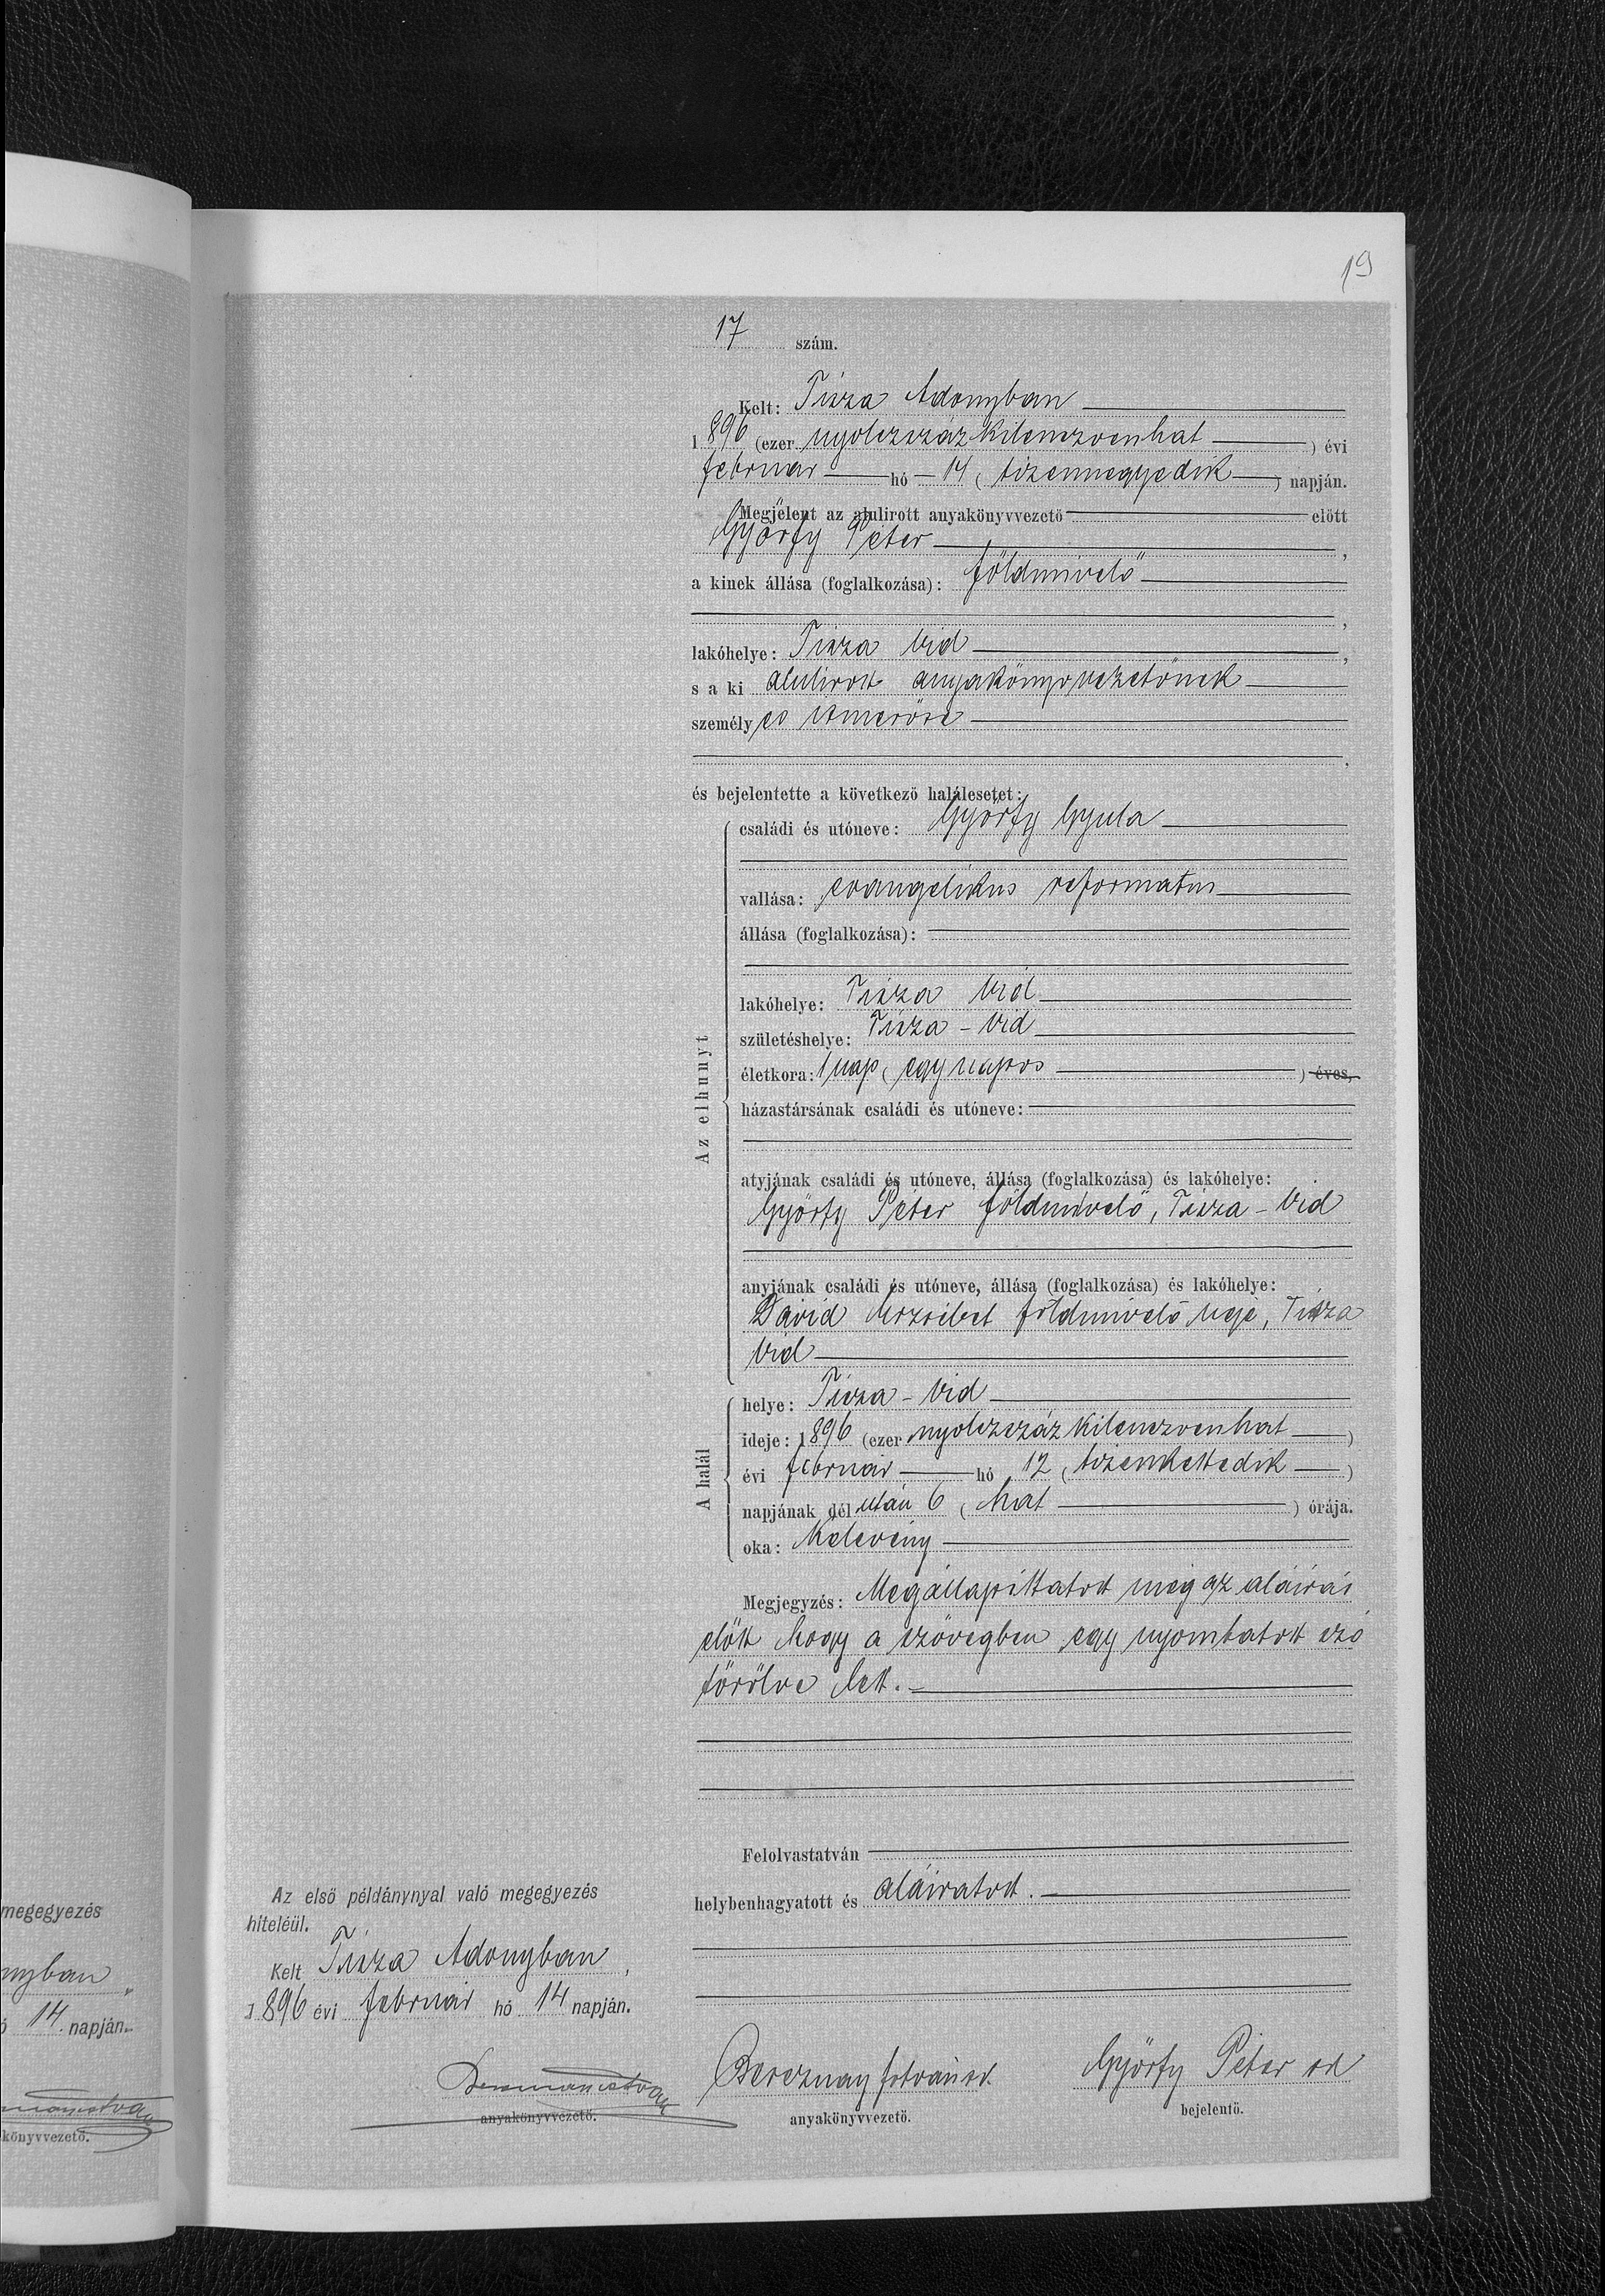 19
17 szám.
Kelt: Tisza Adonyban
1896 (ezer nyolczszázkilenczvenhat ) évi
február hó 14 ( tizennegyedik ) napján.
Megjelent az alulirott anyakönyvvezetö elött
Györfy Péter ,
a kinek állása (foglalkozása): földmivelő
,
lakóhelye: Tisza Vid ,
s a ki alulirott anyakönyvvezetőnek
személyes ismerőse
,
és bejelentette a következö halálesetet:
Az elhunyt
családi és utóneve: Györfy Gyula
vallása: evangelikus reformatus
állása (foglalkozása):
lakóhelye: Tisza Vid
születéshelye: Tisza-Vid
életkora: 1 nap ( egy napos ) éves,
házastársának családi és utóneve:
atyjának családi és utóneve, állása (foglalkozása) és lakóhelye:
Györfy Péter földmivelő, Tisza-Vid
anyjának családi és utóneve, állása (foglalkozása) és lakóhelye:
Dávid Erzsébet földmivelő neje, Tisza
Vid
A halál
helye: Tisza-Vid
ideje: 1896 (ezer nyolczszáz kilenczvenhat )
évi február hó 12 ( tizenkettedik )
napjának dél után 6 ( hat ) órája.
oka: Kelevény
Megjegyzés: Megállapittatott még az aláirás
előtt hogy a szövegben egy nyomtatott szó
törölve lett.
Felolvastatván
helybenhagyatott és aláiratott.
Az elsö példánynyal való megegyezés
hiteléül.
Kelt Tisza Adonyban ,
1896 évi február hó 14 napján.
anyakönyvvezetö.
Bereznay István sk.
anyakönyvvezetö.
Györfy Péter sk
bejelentö.
megegyezés
nyban „
ó 14. napján.
könyvvezetö.